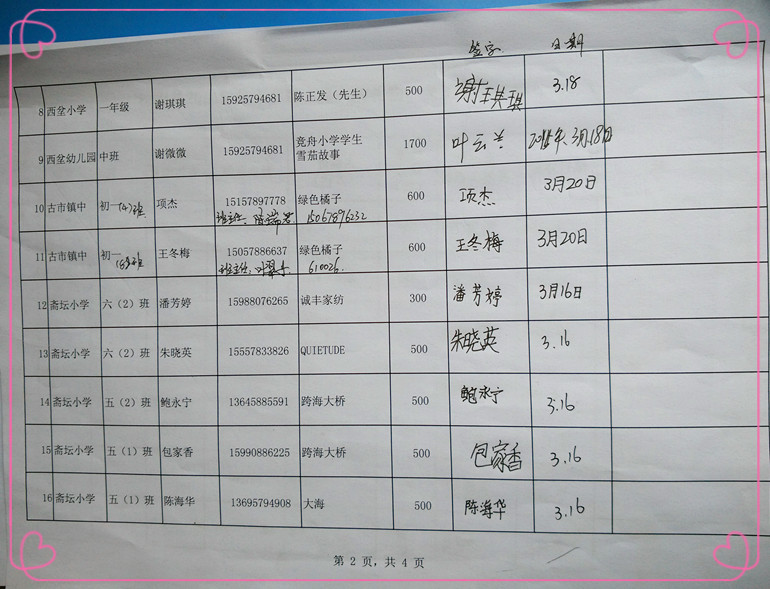 签字 日期
8 西坌小学 一年级 谢琪琪 15925794681 陈正发（先生） 500 谢琪琪 3.18
9 西坌幼儿园 中班 谢微微 15925794681 竞舟小学学生 1700 叶云兰 3月18日
雪茄故事
10 古市镇中 初一(4)班 项杰 15157897778 绿色橘子 600 项杰 3月20日
班主任: 15067896232
11 古市镇中 初一 王冬梅 15057886637 绿色橘子 600 王冬梅 3月20日
班主任: 610026.
12 斋坛小学 六（2）班 潘芳婷 15988076265 诚丰家纺 300 潘芳婷 3月16日
13 斋坛小学 六（2）班 朱晓英 15557833826 QUIETUDE 500 朱晓英 3.16
14 斋坛小学 五（2）班 鲍永宁 13645885591 跨海大桥 500 鲍永宁 3.16
15 斋坛小学 五（1）班 包家香 15990886225 跨海大桥 500 包家香 3.16
16 斋坛小学 五（1）班 陈海华 13695794908 大海 500 陈海华 3.16
第 2 页，共 4 页